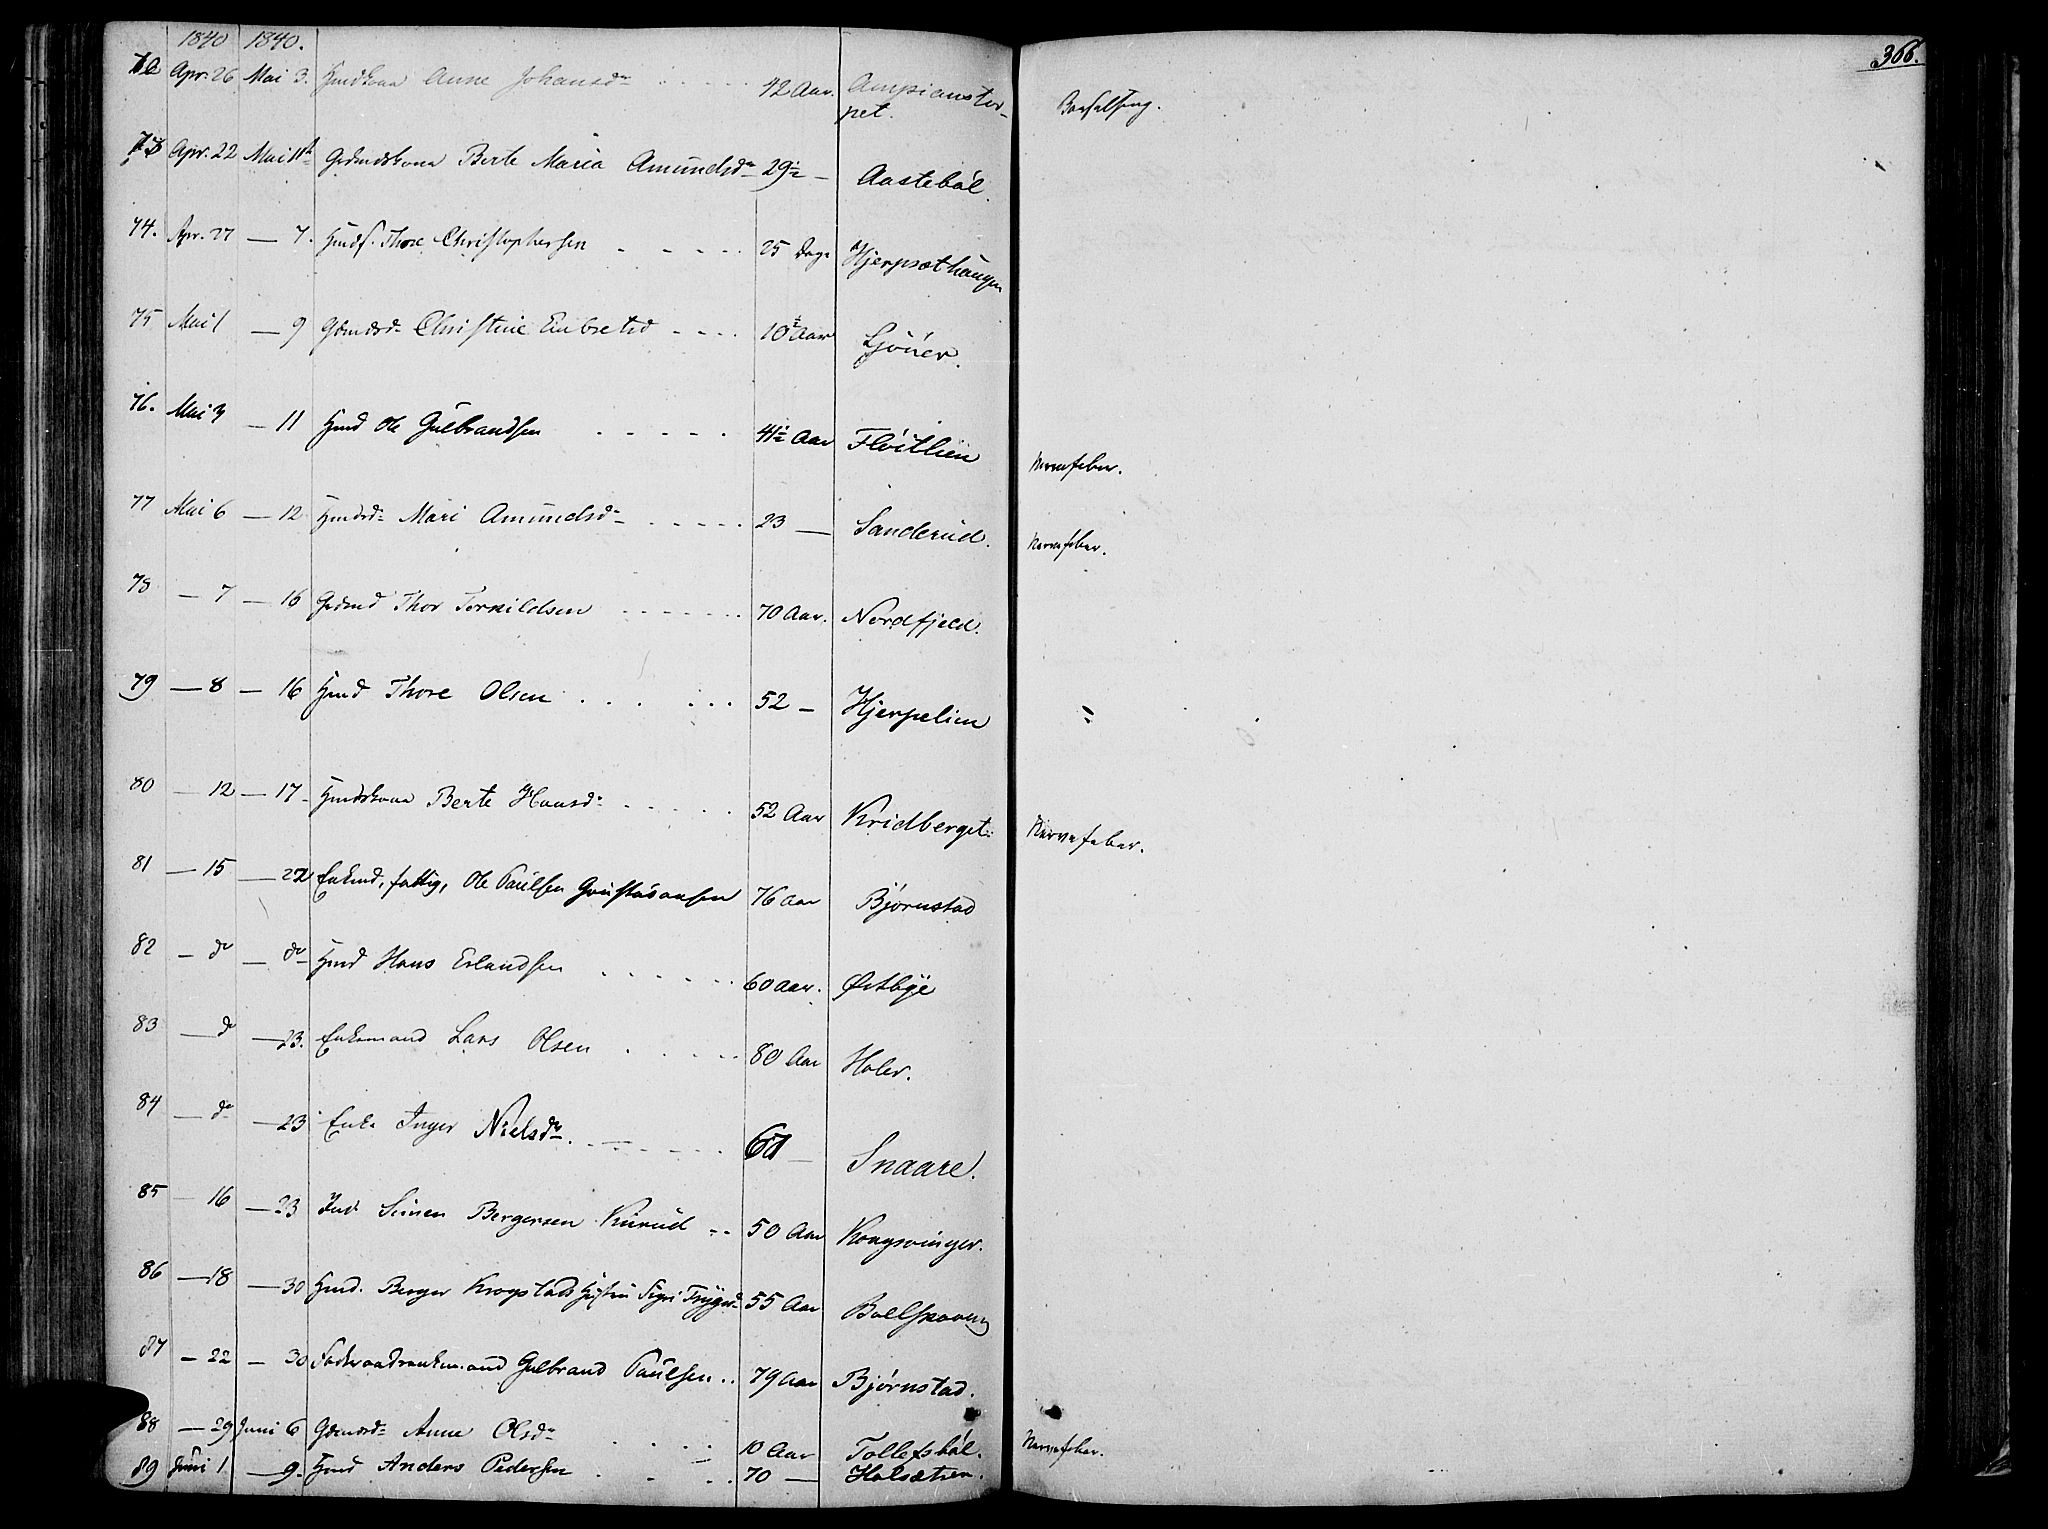 1840 1840.
Apr. 26 Mai 3. Hmdskone Anne Johansdr 42 Aar. Ampianstor-
pet. Barselseng.
366.
73 Apr. 22 Mai Gdmdskone Berte Maria Amundsdr 29½ — Aastebøl.
74. Apr. 27 — 7. Hmdf. Thore Christophersen 25 Dage Hjerpsæthaugen
75 Mai 1 — 9 Gdmdsdr Christine Embretsd 10½ Aar Ljöner.
76. Mai 3 — 11 Hmd Ole Gulbrandsen 41½ Aar Fløitlien Nervefeber.
77 Mai 6 — 12 Hmdsdr Mari Amundsdr 23 — Sanderud. Nervefeber.
78 — 7 — 16 Gdmd Thor Torkildsen 70 Aar. Nordfjeld.
79 — 8 — 16 Hmd Thore Olsen 52 — Hjerpelien
80 — 12 — 17 Hmdskone Berte Hansdr 52 Aar Kridberget. Nervefeber.
81 — 15 — 22 Enkmd, fattig, Ole Paulsen 76 Aar Bjørnstad
82 — do — do Hmd Hans Erlandsen 60 Aar. Østbye
83 — do — 23. Enkemand Lars Olsen 80 Aar Holer.
84 — do — 23 Enke Inger Nielsdr. — Snaare.
85 — 16 — 23 Ind Simen Bergersen Kurud 50 Aar Kongsvinger.
86 — 18 — 30 Hmd. Berger Krogstads Hustru Sigri Trygsdr 55 Aar
87 — 22 — 30 Føderaadsenkemand Gulbrand Paulsen 79 Aar Bjørnstad.
88 — 29 Juni 6 Gdmdsdr Anne Olsdr 10 Aar Tollefsbøl. Nervefeber.
89 Juni 1 — 9. Hmd Anders Pedersen 70 — Holsætren.